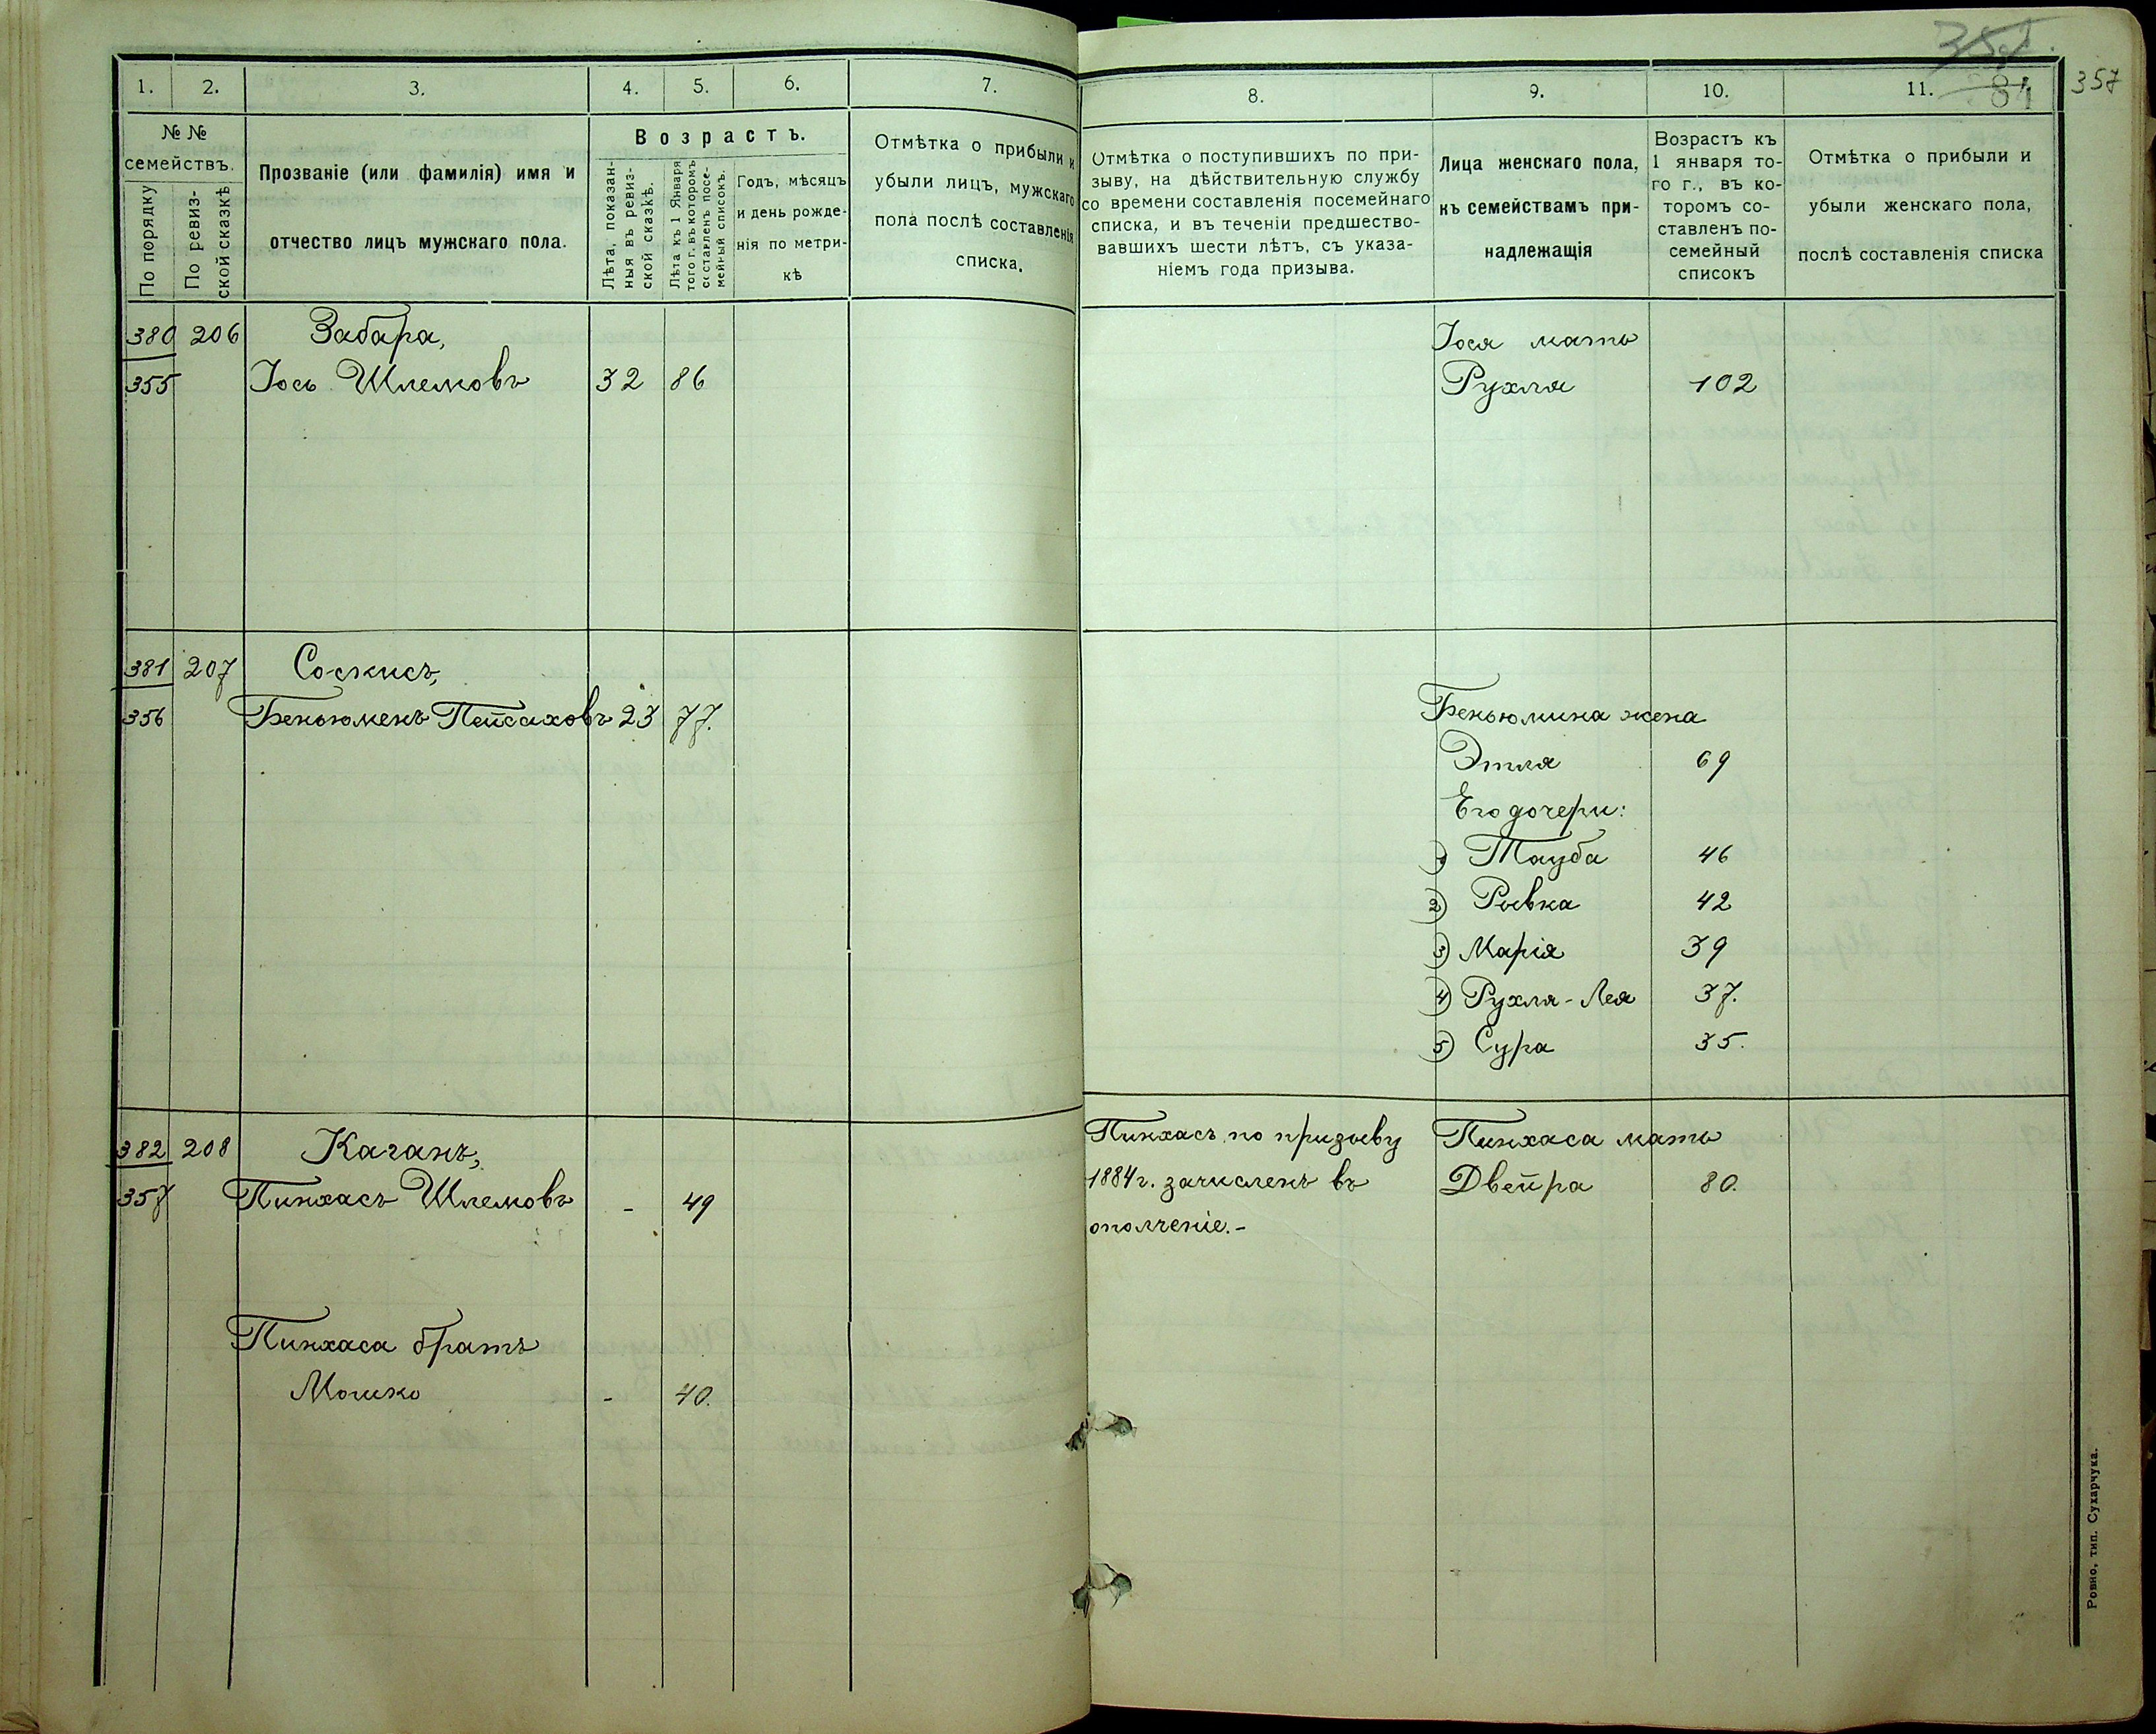 1. 2. 3. 4. 5. 6. 7.
№ № семействъ.
По порядку
По ревиз-
ской сказкѣ
Прозваніе (или фамилія) имя и
отчество лицъ мужскаго пола.
Возрастъ.
Лѣта, показан-
ныя въ ревиз-
ской сказкѣ.
Лѣта къ 1 Января
того г. въ которомъ
составленъ посе-
мейный списокъ.
Годъ, мѣсяцъ
и день рожде-
нія по метри-
кѣ
Отмѣтка о прибыли и
убыли лицъ, мужскаго
пола послѣ составленія
списка.
380 206 Забара,
355 Іось Шлемовъ 32 86
381 207 Соскисъ,
356 Беньюменъ Пейсаховъ 23 77.
382 208 Каганъ,
357 Пинхасъ Шлемовъ - 49
Пинхаса братъ
Мошко - 40.
8. 9. 10. 11. 81 357
Отмѣтка о поступившихъ по при-
зыву, на дѣйствительную службу
со времени составленія посемейнаго
списка, и въ теченіи предшество-
вавшихъ шести лѣтъ, съ указа-
ніемъ года призыва.
Лица женскаго пола,
къ семействамъ при-
надлежащія
Возрастъ къ
1 января то-
го г., въ ко-
торомъ со-
ставленъ по-
семейный
списокъ
Отмѣтка о прибыли и
убыли женскаго пола,
послѣ составленія списка
Іося мать
Рухля 102
Беньюмина жена
Этля 69
Его дочери:
1) Тауба 46
2) Ривка 42
3) Марія 39
4) Рухля-Лея 37.
5) Сура 35.
Пинхасъ по призыву Пинхаса мать
1884 г. зачисленъ въ Двейра 80.
ополченіе.-
Ровно, тип. Сухарчука.